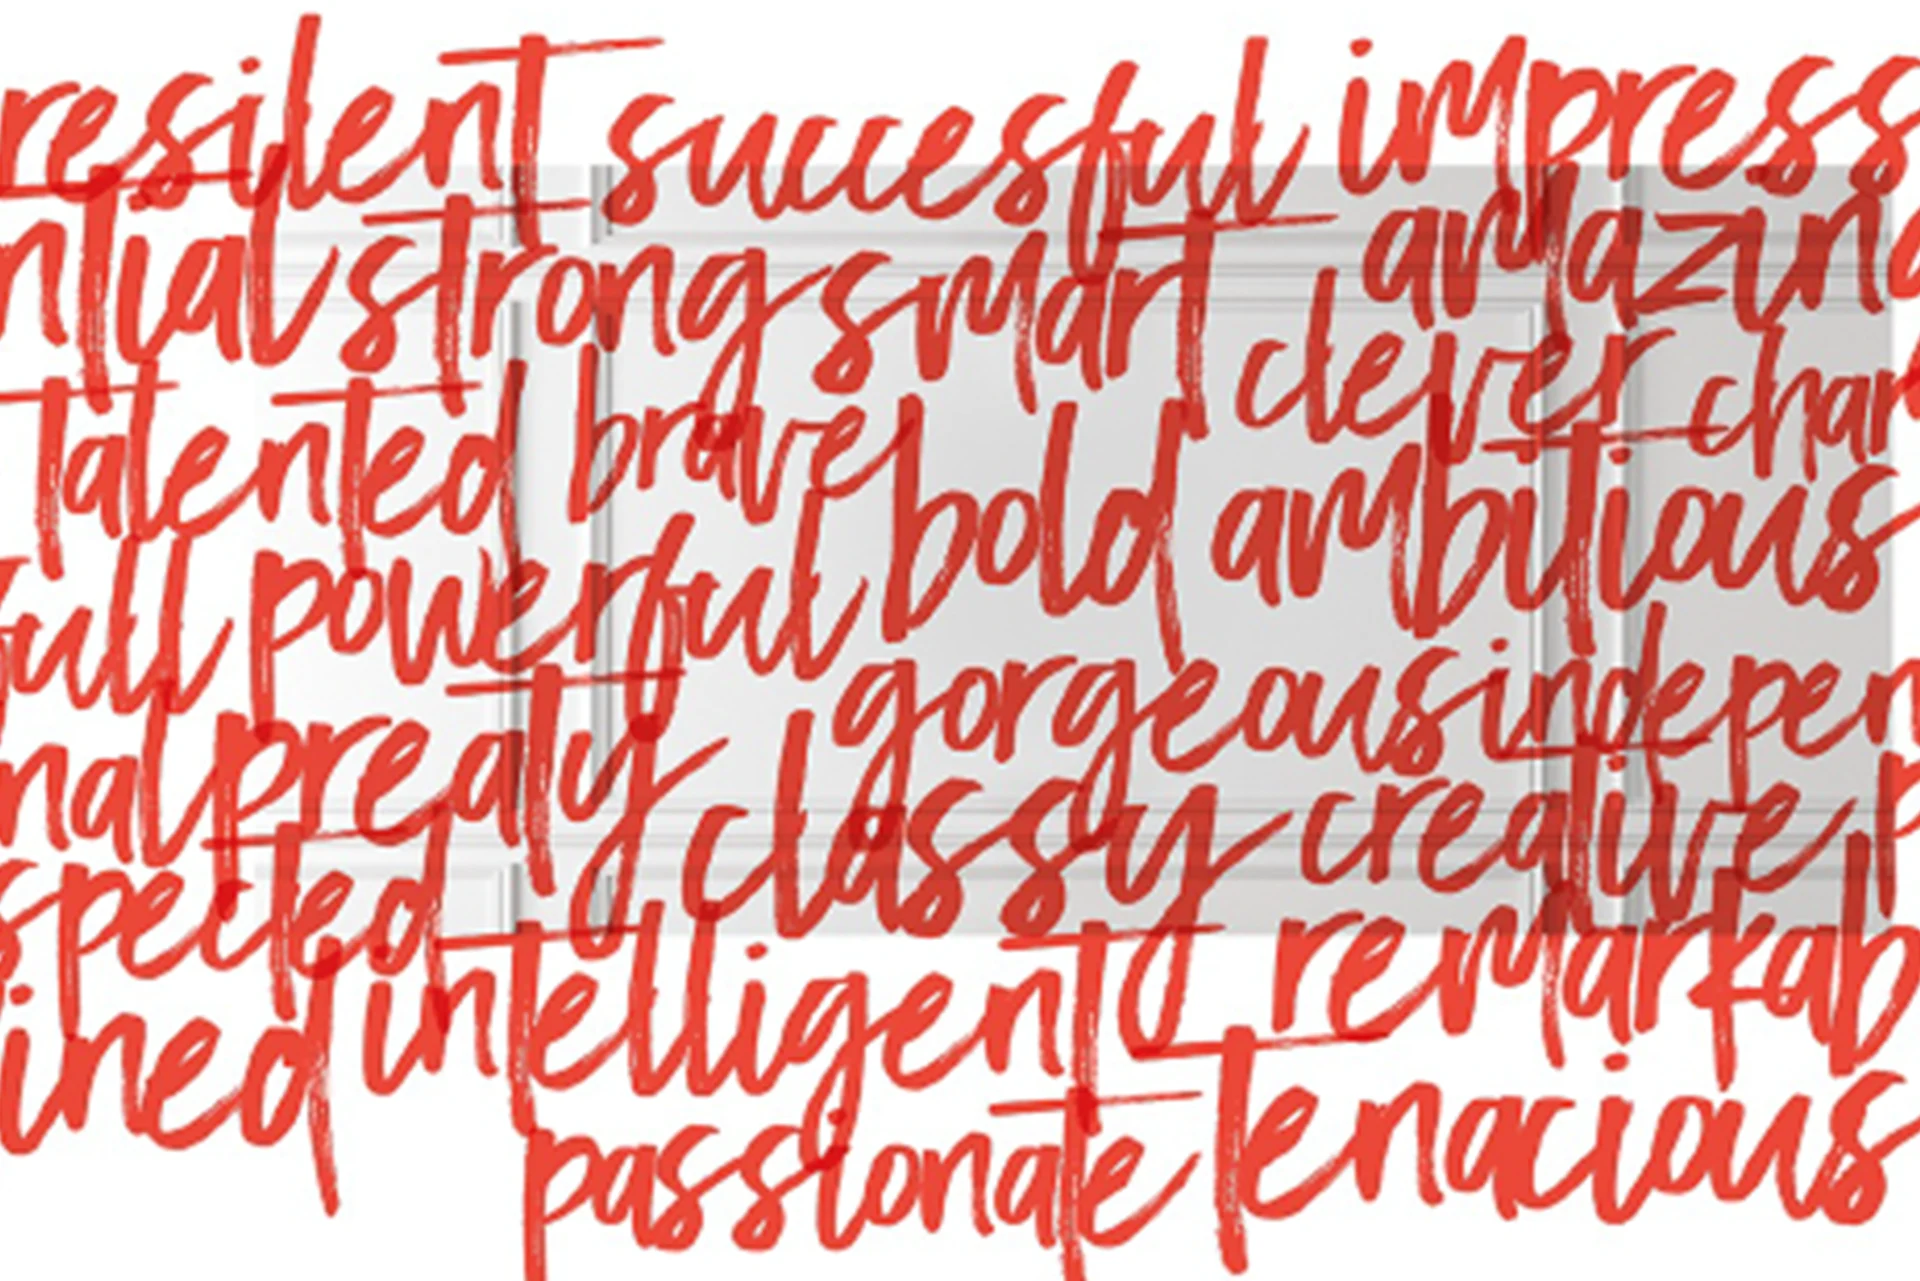 resilent succesful impress
ntial strong smart amazing
talented brave clever char
full powerful bold ambitious
nal preaty gorgeous indepen
spected classy creative p
ined intelligent remarkab
passionate tenacious